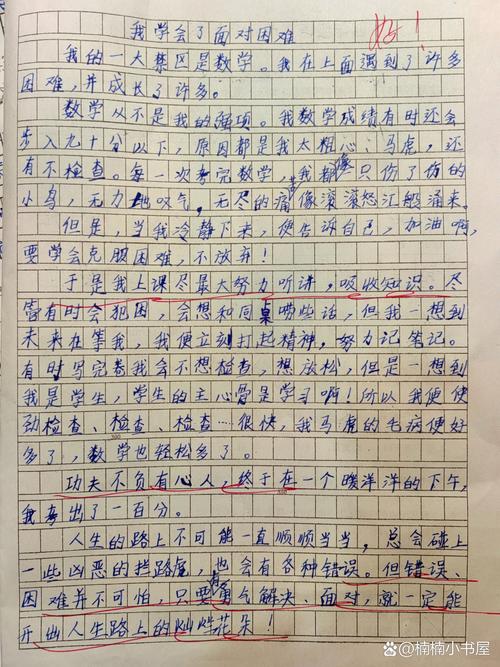 我学会了面对困难
好！
我的一大禁区是数学。我在上面遇到了许多
困难，并成长了许多。
数学从不是我的强项。我数学成绩有时还会
步入九十分以下，原因都是我太粗心、马虎，还
有不检查。每一次考完数学，我都像只伤了伤的
小鸟，无力地叹气，无尽的痛像滚滚怒江般涌来。
但是，当我冷静下来，便告诉自己，加油啊，
要学会克服困难，不放弃！
于是我上课尽最大努力听讲，吸收知识。尽
管有时会犯困，会想和同桌唠些话，但我一想到
未来在等我，我便立刻打起精神，努力记笔记。
有时写完卷我会不想检查，想放松，但是一想到
我是学生，学生的主心骨是学习啊！所以我便使
劲检查、检查、检查……很快，我马虎的毛病便好
多了，数学也轻松多了。
功夫不负有心人，终于在一个暖洋洋的下午，
我考出了一百分。
人生的路上不可能一直顺顺当当，总会碰上
一些凶恶的拦路虎，也会有各种错误。但错误、
困难并不可怕，只要有勇气解决、面对，就一定能
开出人生路上的灿烂花朵！
头条 @楠楠小书屋